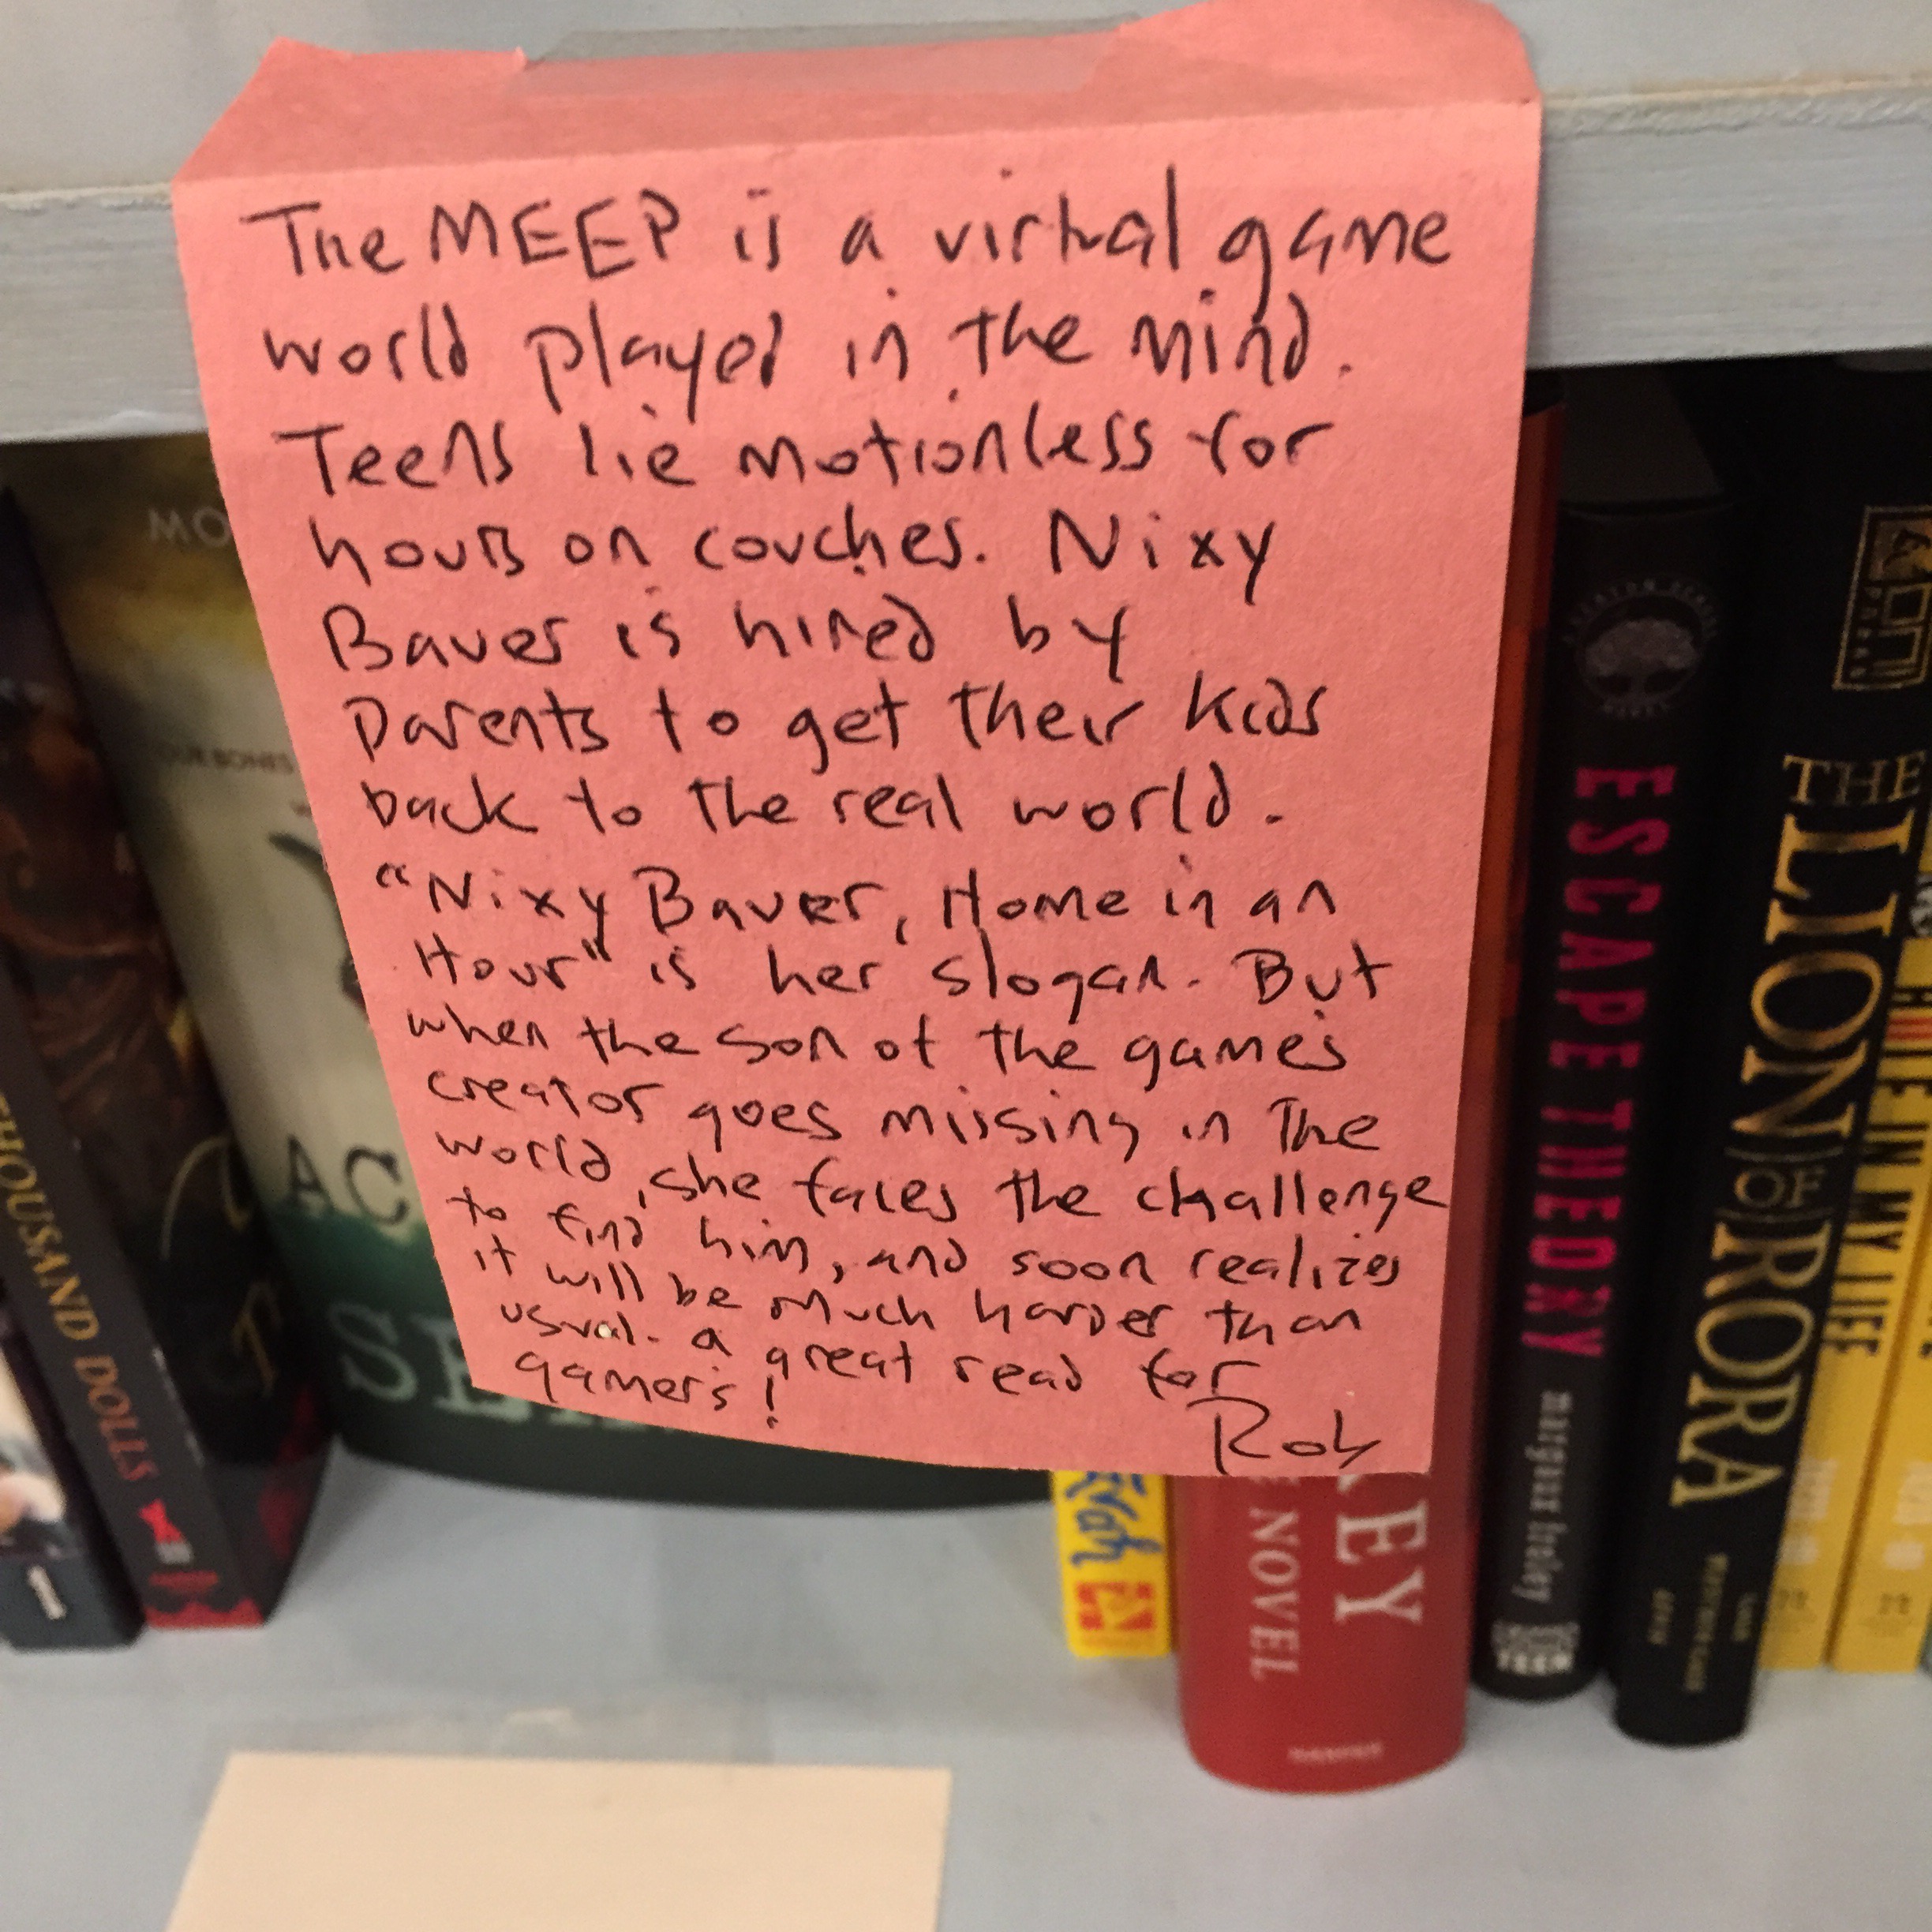 The MEEP is a virtual game
world played in the mind.
Teens lie motionless for
hours on couches. Nixy
Bauer is hired by
Parents to get their kids
back to the real world.
"Nixy Bauer, Home in an
Hour" is her slogan. But
when the son of the game's
creator goes missing in the
world, she faces the challenge
to find him, and soon realizes
it will be much harder than
usual. a great read for
gamers!
Rob
MO
OUR BONES
AC
THOUSAND DOLLS
1
NOVEL
EY
HARPER
ESCAPE THEORY
margaux froley
TEEN
THE LION OF RORA
IN MY LIFE